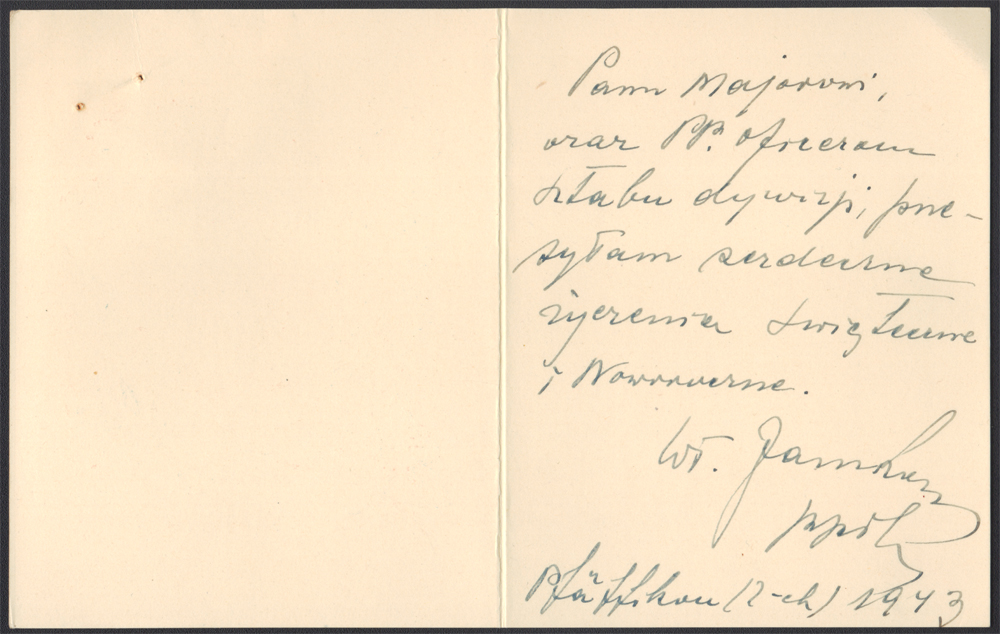 Panu Majorowi,
oraz PP. oficerom
sztabu dywizji, prze-
syłam serdeczne
życzenia świąteczne
i Noworoczne.
Wł.
ppłk
Pfäffikon (Z-ch) 1943